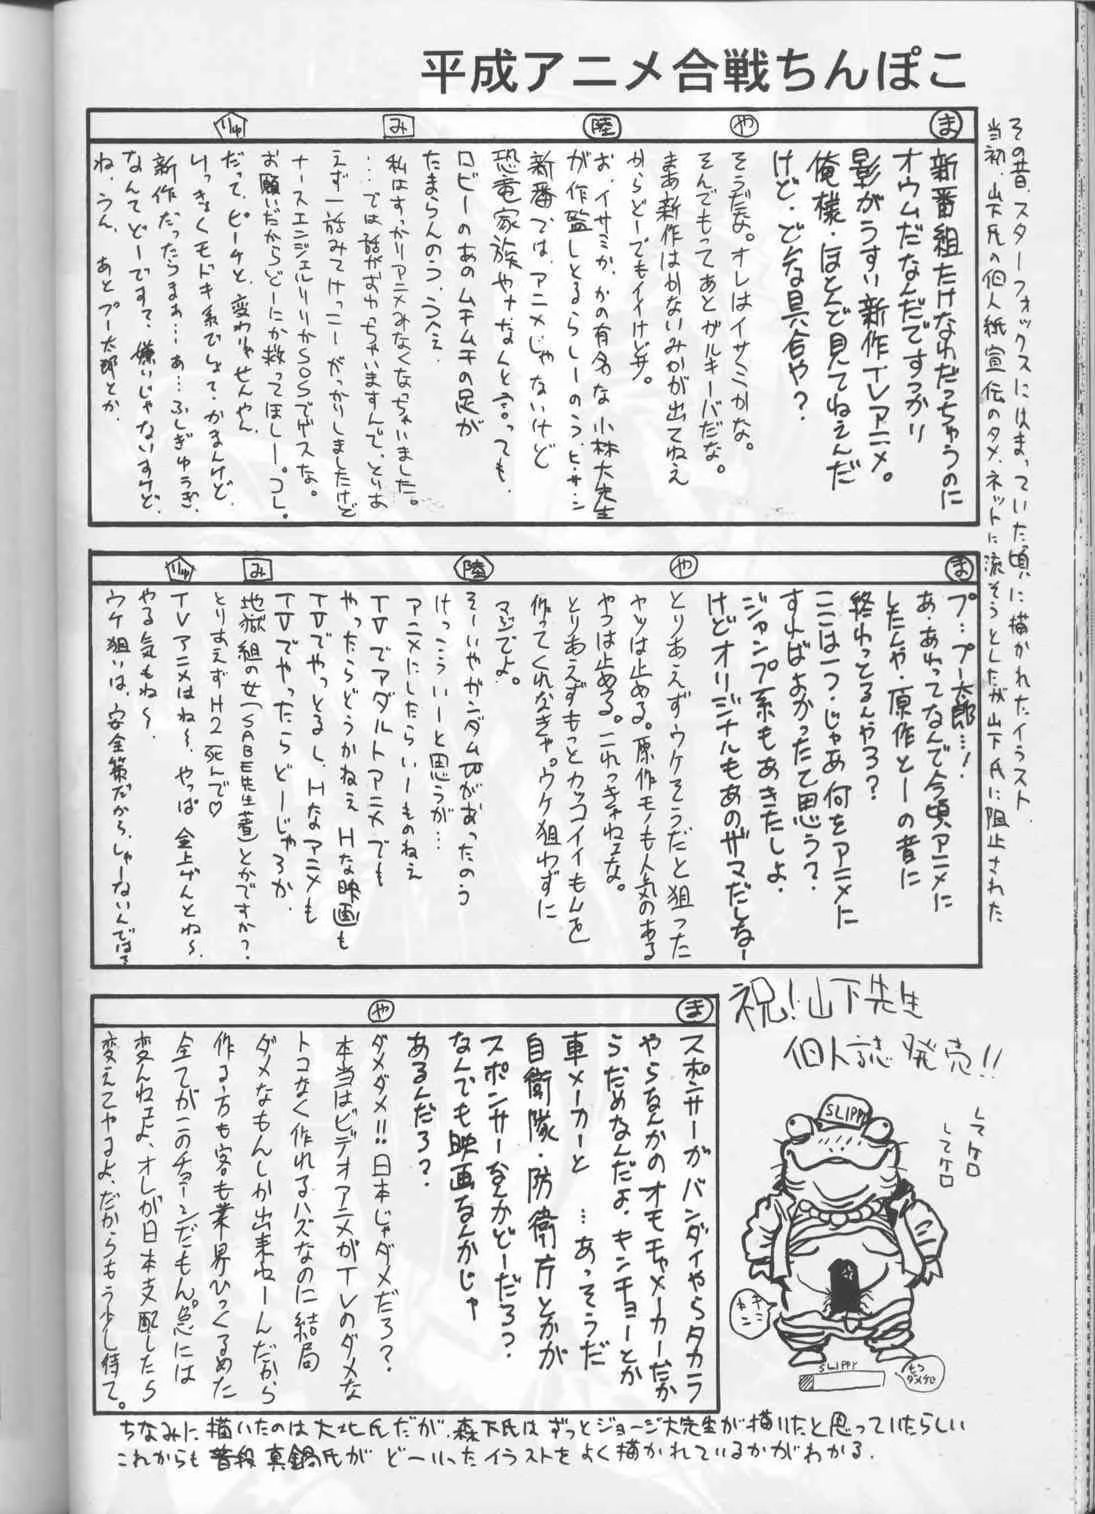 平成アニメ合戦ちんぽこ
その昔、スターフォックスにはまっていた頃に描かれたイラスト。
当初、山下氏の個人紙宣伝のタメ、ネットに流そうとしたが山下氏に阻止された
ま
新番組たけなわだっちゅうのに
オウムだなんだですっかり
影がうすい新作TVアニメ。
俺様・ほとんど見てねぇんだ
けど・どんな具合や？
や
そうだよ。オレはイサミかな。
そんでもってあとガルキーバだな。
まあ新作はかないみかが出てねえ
からどーでもイイけどサ。
陸
お、イサミか、かの有名な小林大先生
が作監しとるらしーのう、ヒ・サ・シ
新番では、アニメじゃないけど
恐竜家族やけなんと言っても、
ロビーのあのムチムチの足が
たまらんのう、ううぇぇ
み
私はすっかりアニメみなくなっちゃいました。
…では話がおわっちゃいますんで、とりあ
えず一話みてけっこーがっかりしましたけど
ナースエンジェルリリカSOSでゲスな。
お願いだからどーにか救ってほしー。コレ。
りゅ
だって、ピーチと、変わりゃせんやん
けっきょくモドキ系でしょて・かまんけど、
新作だったらまぁ…あ…ふしぎゅうぎ、
なんてどーですて、嫌いじゃないすけど、
ね、うん、あとプー太郎とか、
ま
プ…プー太郎…！
あ・あれってなんで今頃アニメに
したんや・原作とーの昔に
終わっとるんやろ？
ここは一つ・じゃあ何をアニメに
すればよかったて思う？
ジャンプ系もあきたしよ、
けどオリジナルもあのザマだしなー
や
とりあえずウケそうだと狙った
ヤツは止める。原作モノも人気のある
やつは止める。これっきゃねェな。
とりあえずもっとカッコイイもんを
作ってくれなきゃ。ウケ狙わずに
マジでよ。
陸
そーいやガンダムWがあったのう
けっこういーと思うが…
アニメにしたらいーものねえ
TVでアダルトアニメでも
やったらどうかねえHな映画も
TVでやっとるし、Hなアニメも
TVでやったらどーじゃろか、
み
地獄組の女（SABE先生著）とかですか？
とりあえずH2死んで♡
りゅ
TVアニメはね〜、やっぱ金上げんとね〜、
やる気もね〜
ウケ狙いは、安全策だから、しゃーないんでは？
ま
スポンサーがバンダイやらタカラ
やらなんかのオモチャメーカーだか
らだめなんだよ、キンチョーとか
車メーカーと…あっそうだ
自衛隊・防衛庁とかが
スポンサーなんかどーだろ？
なんでも映画なんかじゃ
あるんだろ？
や
ダメダメ!!日本じゃダメだろ？
本当はビデオアニメがTVのダメな
トコなく作れるハズなのに結局
ダメなもんしか出来ねーんだから
作る方も客も業界ひっくるめた
全てがこのチョーシだもん。急には
変んねェよ、オレが日本支配したら
変えてやるよ、だからもう少し待て。
祝！山下先生
個人誌発売!!
SLIPPY
してケロ
してケロ
キンキン
SLIPPY
もうダメケロ
ちなみに描いたのは大北氏だが、森下氏はずっとジョージ大先生が描いたと思っていたらしい
これからも普段真鍋氏がどーいったイラストをよく描かれているかがわかる。